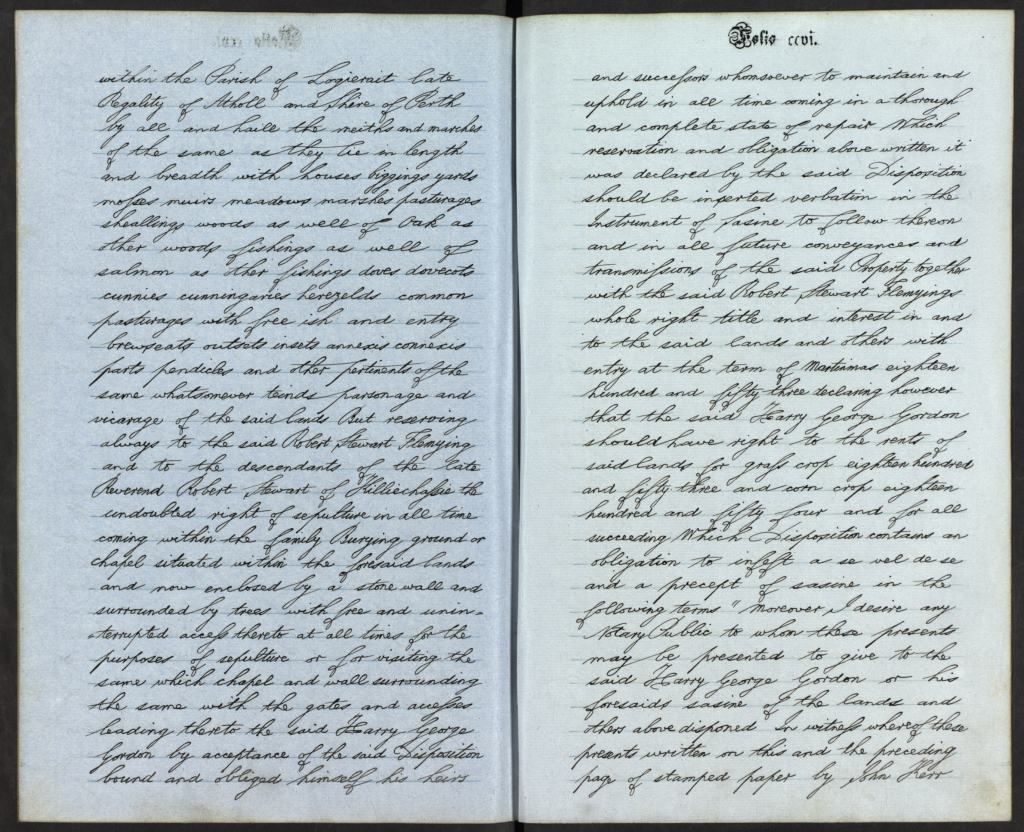 within the Parish of Logierait late
Regality of Atholl and Shire of Perth
by all and haill the meiths and marches
of the same as they lie in length
and breadth with houses biggings yards
mosses muirs meadows marshes pasturages
sheallings woods as well of Oak as
other woods fishings as well of
salmon as other fishings doves dovecots
cunnies cunningaries herezelds common
pasturages with free ish and entry
brewseats outsets insets annexis connexis
parts pendicles and other pertinents of the
same whatsomever teinds parsonage and
vicarage of the said lands But reserving
always to the said Robert Stewart Flemying
and to the descendants of the late
Reverend Robert Stewart of Killiechassie the
undoubted right of sepulture in all time
coming within the family Burying ground or
chapel situated within the foresaid lands
and now enclosed by a stone wall and
surrounded by trees with free and unin-
-terrupted access thereto at all times for the
purposes of sepulture or for visiting the
same which chapel and wall surrounding
the same with the gates and accesses
leading thereto the said Harry George
Gordon by acceptance of the said Disposition
bound and obliged himself his heirs
Folio ccvi.
and successors whomsoever to maintain and
uphold in all time coming in a thorough
and complete state of repair Which
reservation and obligation above written it
was declared by the said Disposition
should be inserted verbatim in the
Instrument of Sasine to follow thereon
and in all future conveyances and
transmissions of the said Property together
with the said Robert Stewart Flemyings
whole right title and interest in and
to the said lands and others with
entry at the term of Martinmas eighteen
hundred and fifty three declaring however
that the said Harry George Gordon
should have right to the rents of
said lands for grass crop eighteen hundred
and fifty three and corn crop eighteen
hundred and fifty four and for all
succeeding Which Disposition contains an
obligation to infeft a se vel de se
and a precept of sasine in the
following terms "Moreover I desire any
Notary Public to whom these presents
may be presented to give to the
said Harry George Gordon or his
foresaids sasine of the lands and
others above disponed In witness whereof these
presents written on this and the preceding
page of stamped paper by John Kerr